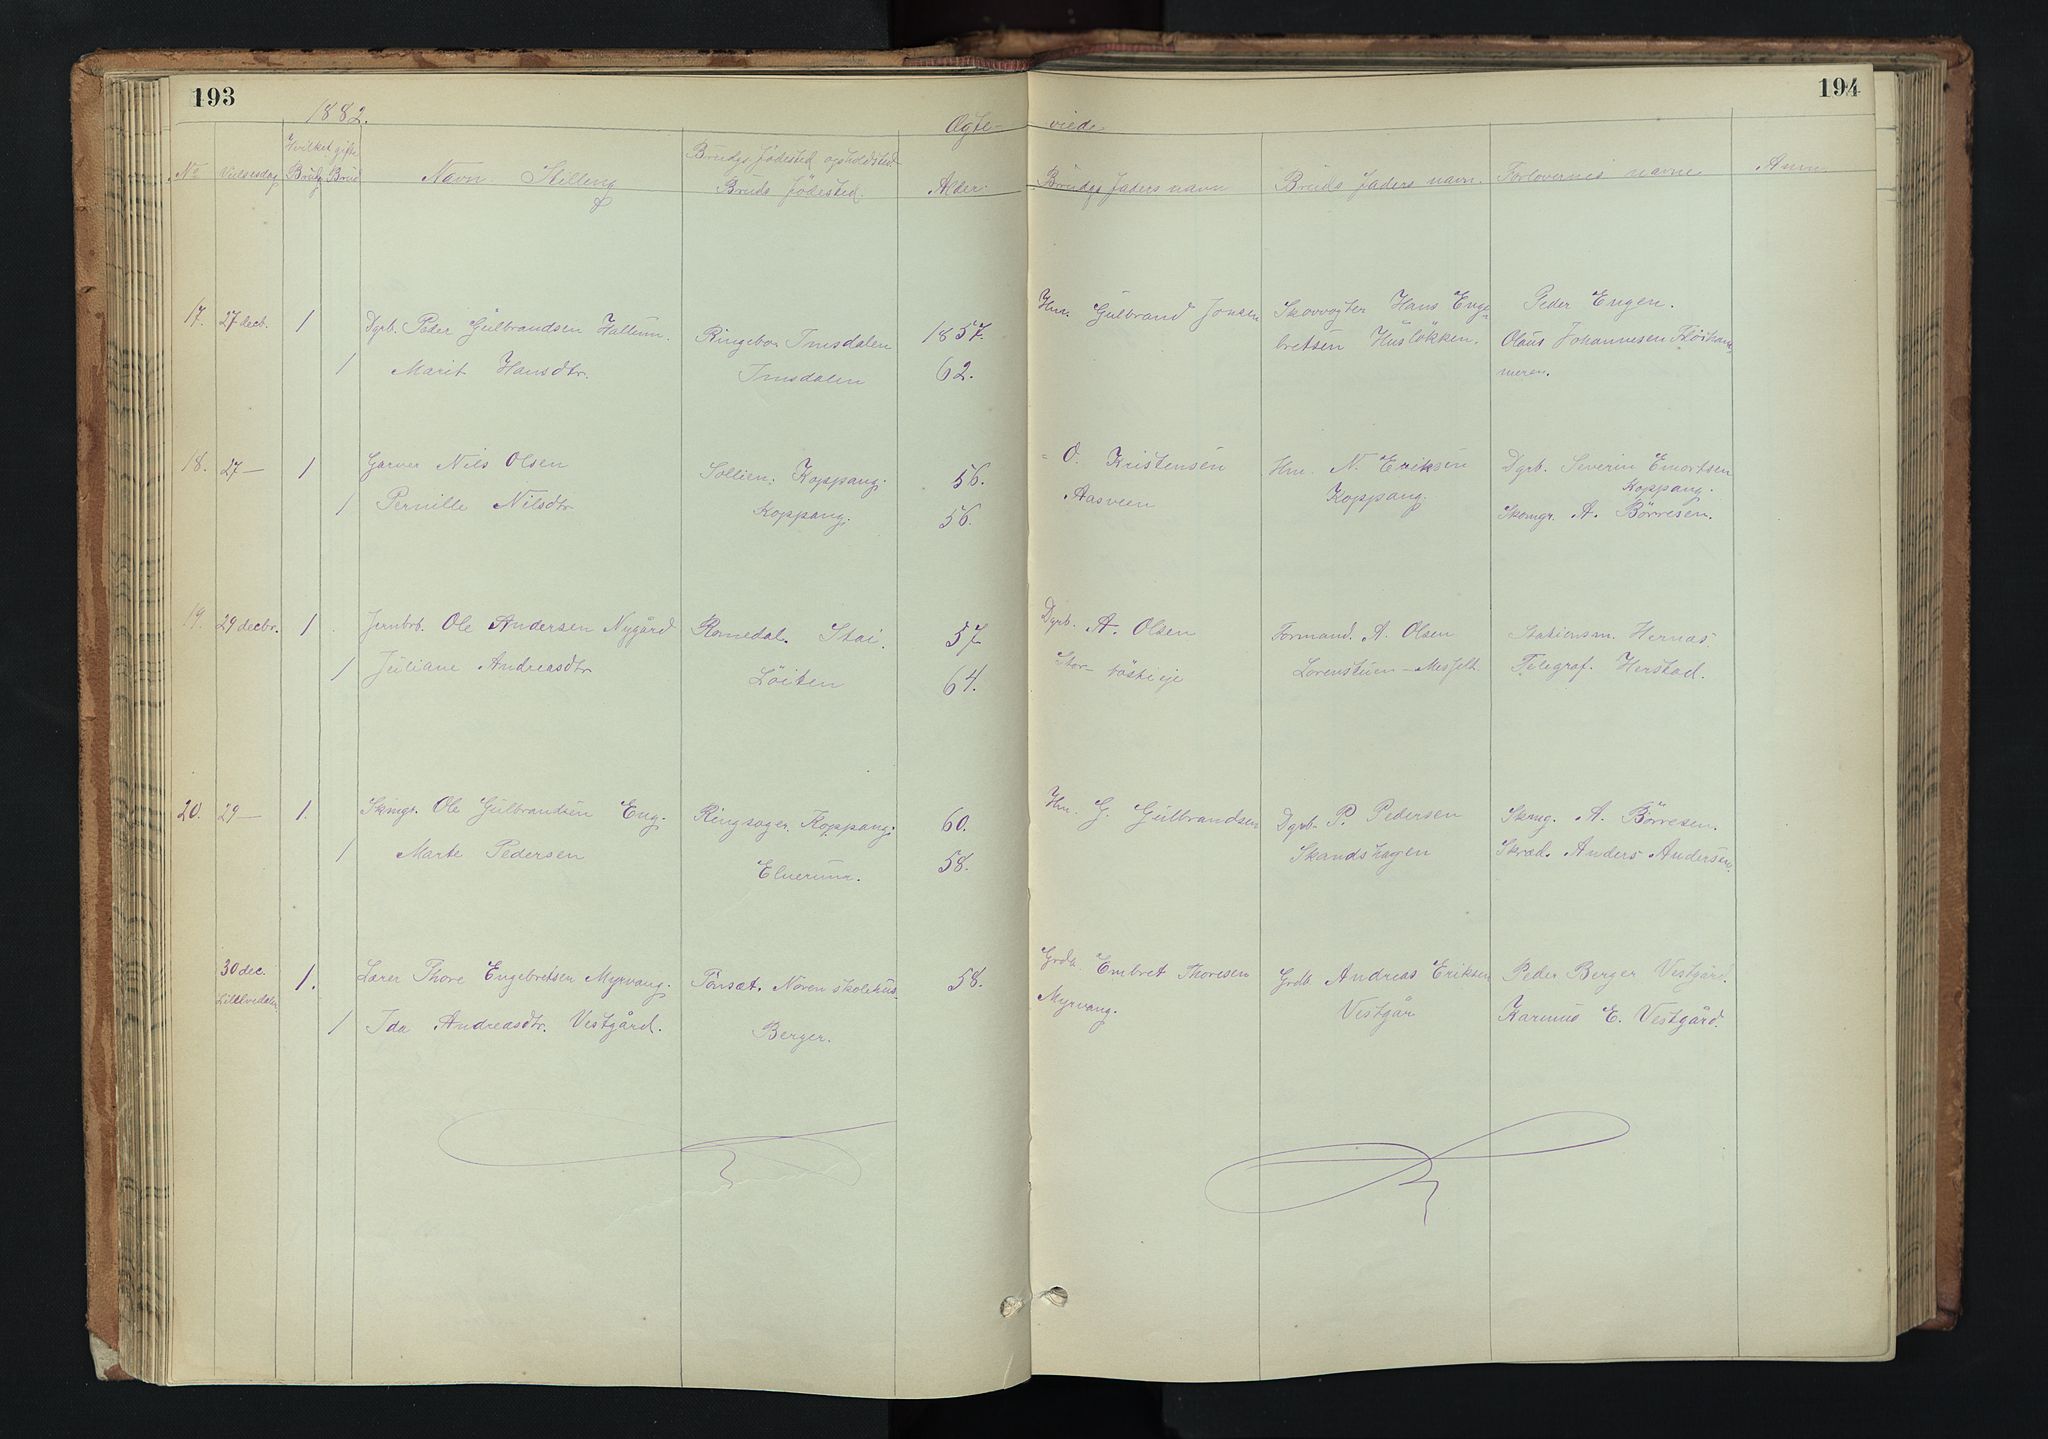 193
194
1882.
Ægte- viede
No Vielsesdag Hvilket gifte Brudg Brud Navn Stilling Brudgs fødested opholdsted Bruds fødested. Alder. Brudgs faders navn Bruds faders navn. Forlovernes navne Anm.
17. 27 decb. 1 Dgrb. Peder Gulbrandsen Hallum. Ringebo Imsdalen 1857. Hm. Gulbrand Jonsen Skovvogter Hans Enge- Peder Engen.
bretsen Husløkken. Olaus Johannesen
1 Marit Hansdtr. Imsdalen 62. meren.
18. 27 — 1 Garver Nils Olsen Sollien. Koppang. 56. O. Kristensen Hm. N. Eriksen Dgrb. Severin Emortsen
1 Pernille Nilsdtr Koppang. 56. Aasveen Koppang. Koppang.
Skomgr. A. Børresen.
19. 29 decbr. 1 Jernbrb. Ole Andersen Nygård Romedal. Stai. 57 Dgrb. A. Olsen Formand. A. Olsen Stationsm. Hernæs.
1 Juliane Andreasdtr Løiten 64. Lorenstuen — Messelt. Telegraf. Herstad.
20. 29 — 1. Skmgr. Ole Gulbrandsen Eng. Ringsager. Koppang. 60. Hm. G. Gulbrandsen Dgrb. P. Pedersen Skmg. A. Børresen.
1 Marte Pedersen Elverum. 58. Skandshagen Skræd. Anders Andersen.
30 dec. 1. Lærer Thore Engebretsen Myrvang. Tønsæt. Nøren skolehus. 58. Grdb. Embret Thoresen Grdb. Andreas Eriksen Peder Berger Vestgård.
Lilleelvedalen 1 Ida Andreasdtr. Vestgård. Berger. Myrvang. Vestgår Karinus E. Vestgård.